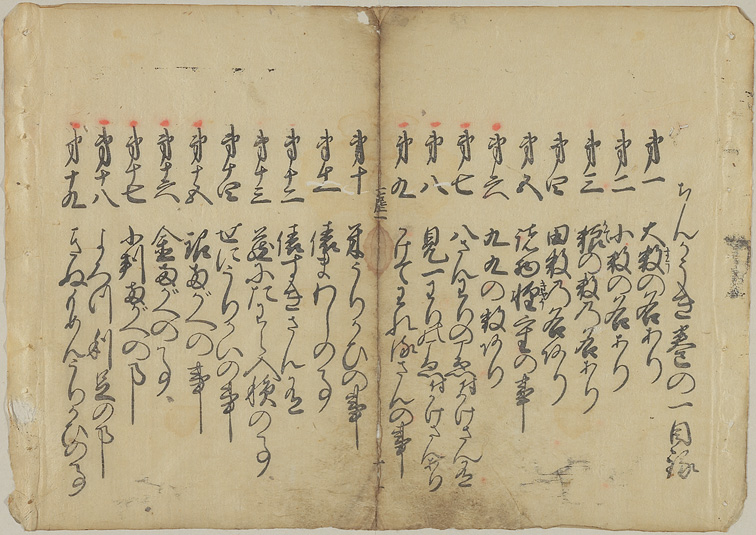 ちんかうき巻の一目録
第一 大数の名あり
第二 小数の名あり
第三 粮の数乃名あり
第四 田数乃名あり
第五 諸物軽重の事
第六 九九の数あり
第七 八さんわりの付かけさん有
第八 見一わりの付かけさんあり
第九 かけてわれるさんの事
第十 米うりかひの事
第十一 俵まわしの事
第十二 俵すきさん有
第十三 入候の事
第十四 ぜにうりかいの事
第十五 銀両がへの事
第十六 金両がへの事
第十七 小判両がへの事
第十八 よろづ利足の事
第十九 きぬもめんうりかひの事